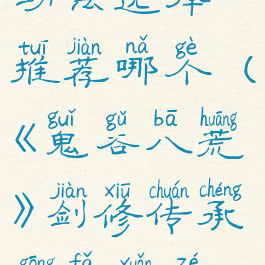 tuī jiàn nǎ gè
推荐哪个（
guǐ gǔ bā huāng
《鬼谷八荒
jiàn xiū chuán chéng
》剑修传承
gōng fǎ xuǎn zé